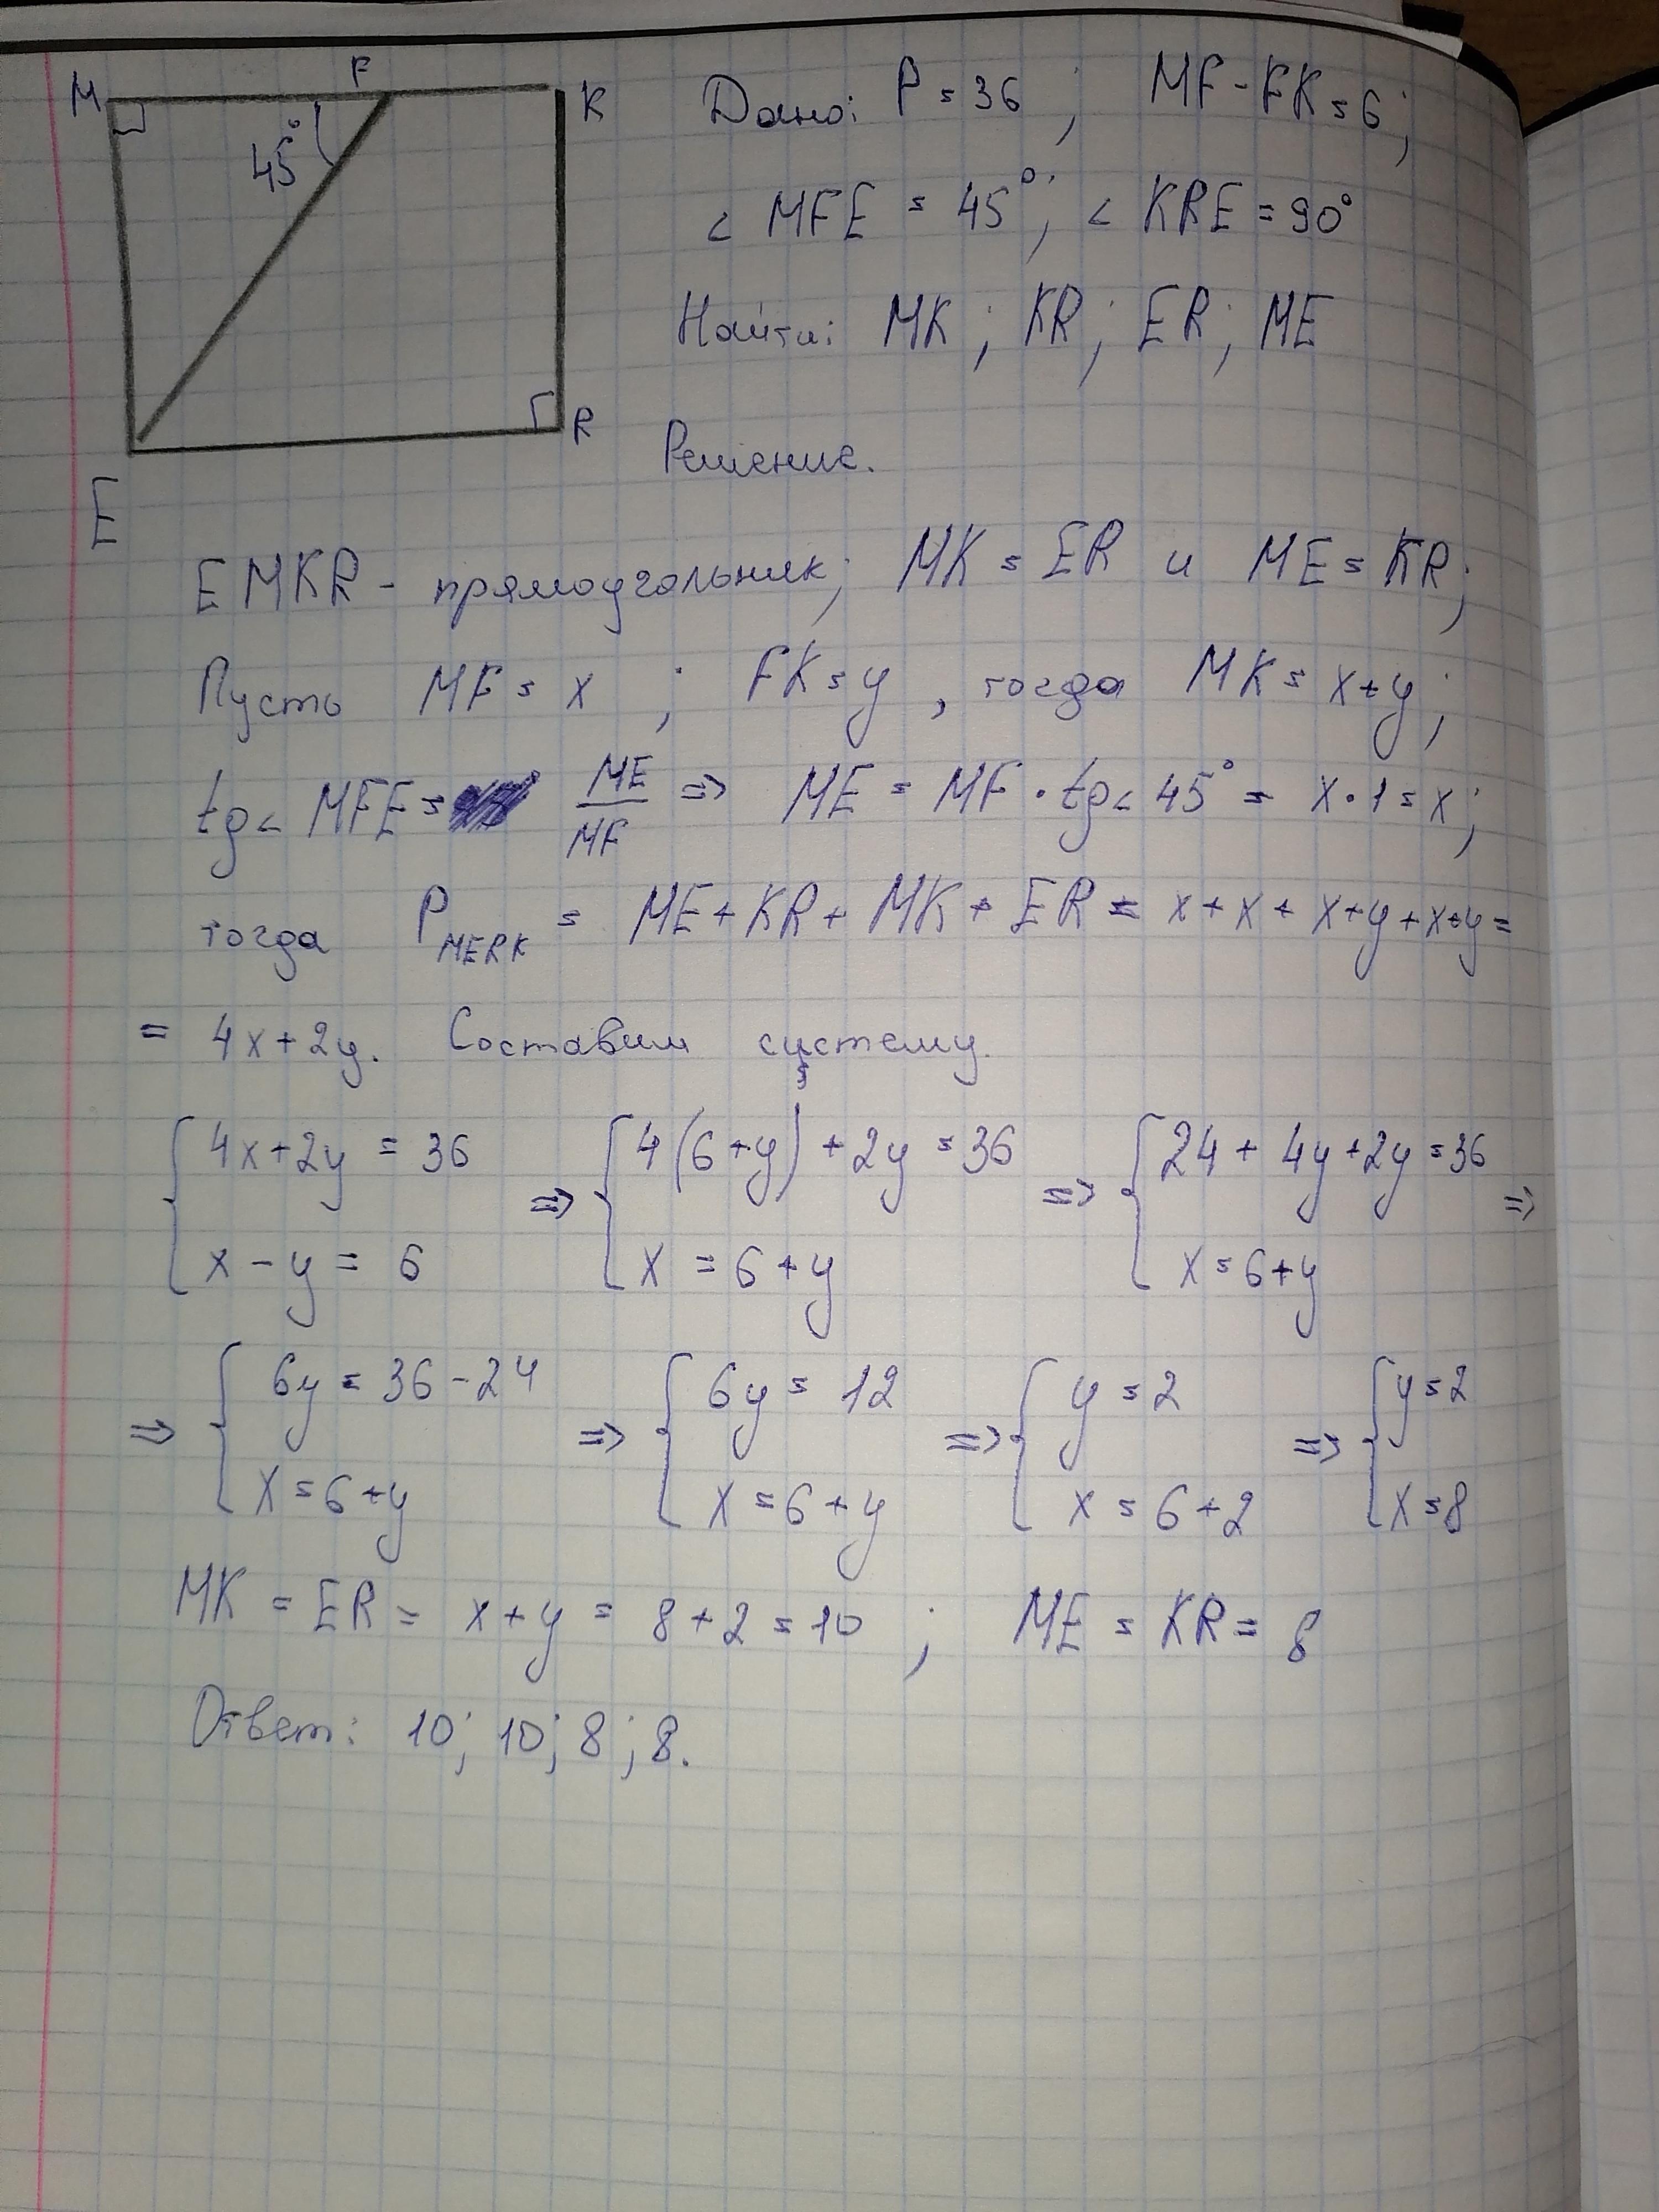 M F K
45°
R
E
Дано: P = 36 ; MF - FK = 6;
∠ MFE = 45°; ∠ KRE = 90°
Найти: MK ; KR ; ER ; ME
Решение.
EMKR - прямоугольник; MK = ER и ME = KR;
Пусть MF = x ; FK = y , тогда MK = x+y ;
tg∠ MFE = ME/MF => ME = MF · tg∠ 45° = x · 1 = x ;
тогда P MERK = ME + KR + MK + ER = x + x + x+y + x+y =
= 4x + 2y. Составим систему.
{ 4x+2y = 36 => { 4(6+y) + 2y = 36 => { 24 + 4y + 2y = 36 =>
x - y = 6 x = 6 + y x = 6+y
=> { 6y = 36 - 24 => { 6y = 12 => { y = 2 => { y = 2
x = 6 + y x = 6 + y x = 6 + 2 x = 8
MK = ER = x + y = 8 + 2 = 10 ; ME = KR = 8
Ответ: 10; 10; 8 ; 8.